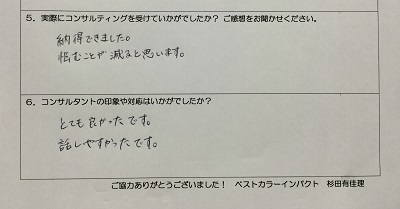 5. 実際にコンサルティングを受けていかがでしたか？ ご感想をお聞かせください。
納得できました。
悩むことが減ると思います。
6. コンサルタントの印象や対応はいかがでしたか？
とても良かったです。
話しやすかったです。
ご協力ありがとうございました！ ベストカラーインパクト 杉田有佳理